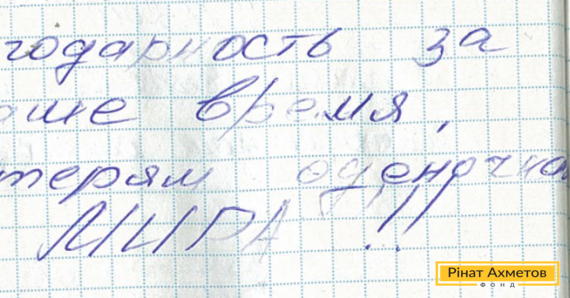 годарность за
аше время,
терям одиночка
МИРА!!
Рінат Ахметов
ФОНД